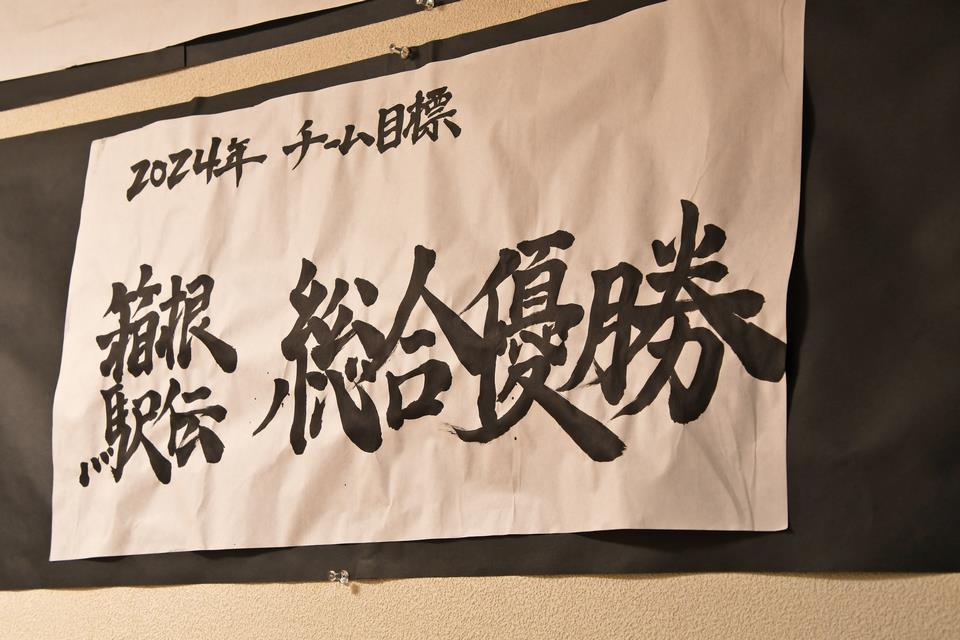 2024年 チーム目標
箱根駅伝 総合優勝